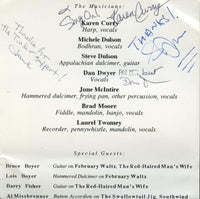 The Musicians:
Sing Out! Karen Curry
Karen Curry
Harp, vocals
Michele Dulson
Bodhran, vocals
THANKS!
Steve Dulson
Appalachian dulcimer, guitar
Thanks for
the
Support!
Dan Dwyer
Vocals
June McIntire
Hammered dulcimer, frying pan, other percussion, vocals
Brad Moore
Fiddle, mandolin, banjo, vocals
Laurel Twomey
Recorder, pennywhistle, mandolin, vocals
Special Guests:
Bruce Boyer Guitar on February Waltz, The Red-Haired Man's Wife
Lois Boyer Hammered Dulcimer on February Waltz
Barry Fisher Guitar on The Red-Haired Man's Wife
Al Missbrunner Button Accordion on The Swallowtail Jig, Southwind